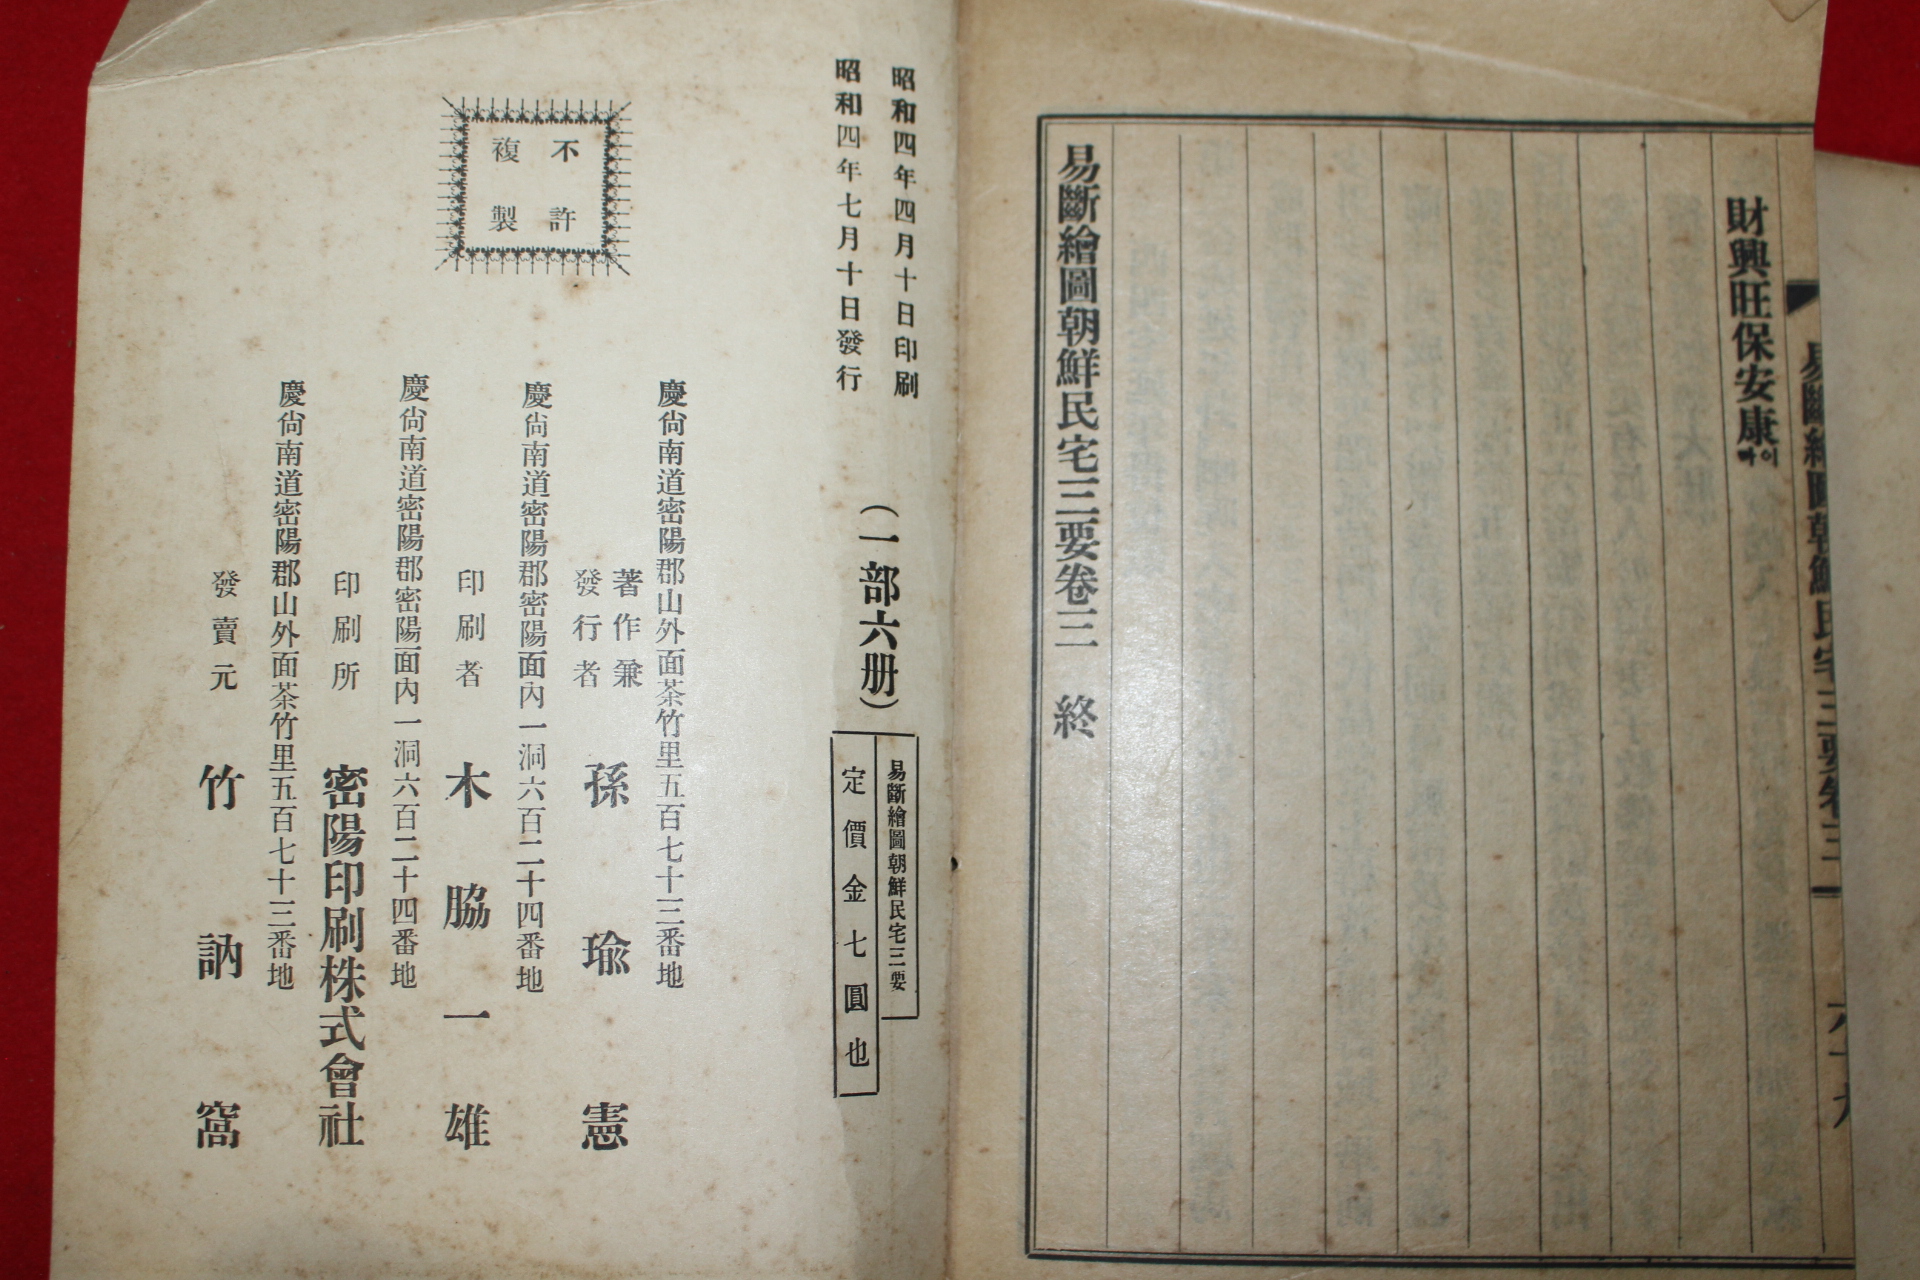 財興旺保安康이
마
易斷繪圖朝鮮民宅三要卷三 終
易斷繪圖朝鮮民宅三要卷三
六十九
昭和四年四月十日印刷
昭和四年七月十日發行
(一部六册)
易斷繪圖朝鮮民宅三要
定價金七圓也
不許
複製
慶尙南道密陽郡山外面茶竹里五百七十三番地
著作兼
發行者
孫瑜憲
慶尙南道密陽郡密陽面內一洞六百二十四番地
印刷者 木脇一雄
慶尙南道密陽郡密陽面內一洞六百二十四番地
印刷所 密陽印刷株式會社
慶尙南道密陽郡山外面茶竹里五百七十三番地
發賣元 竹訥窩